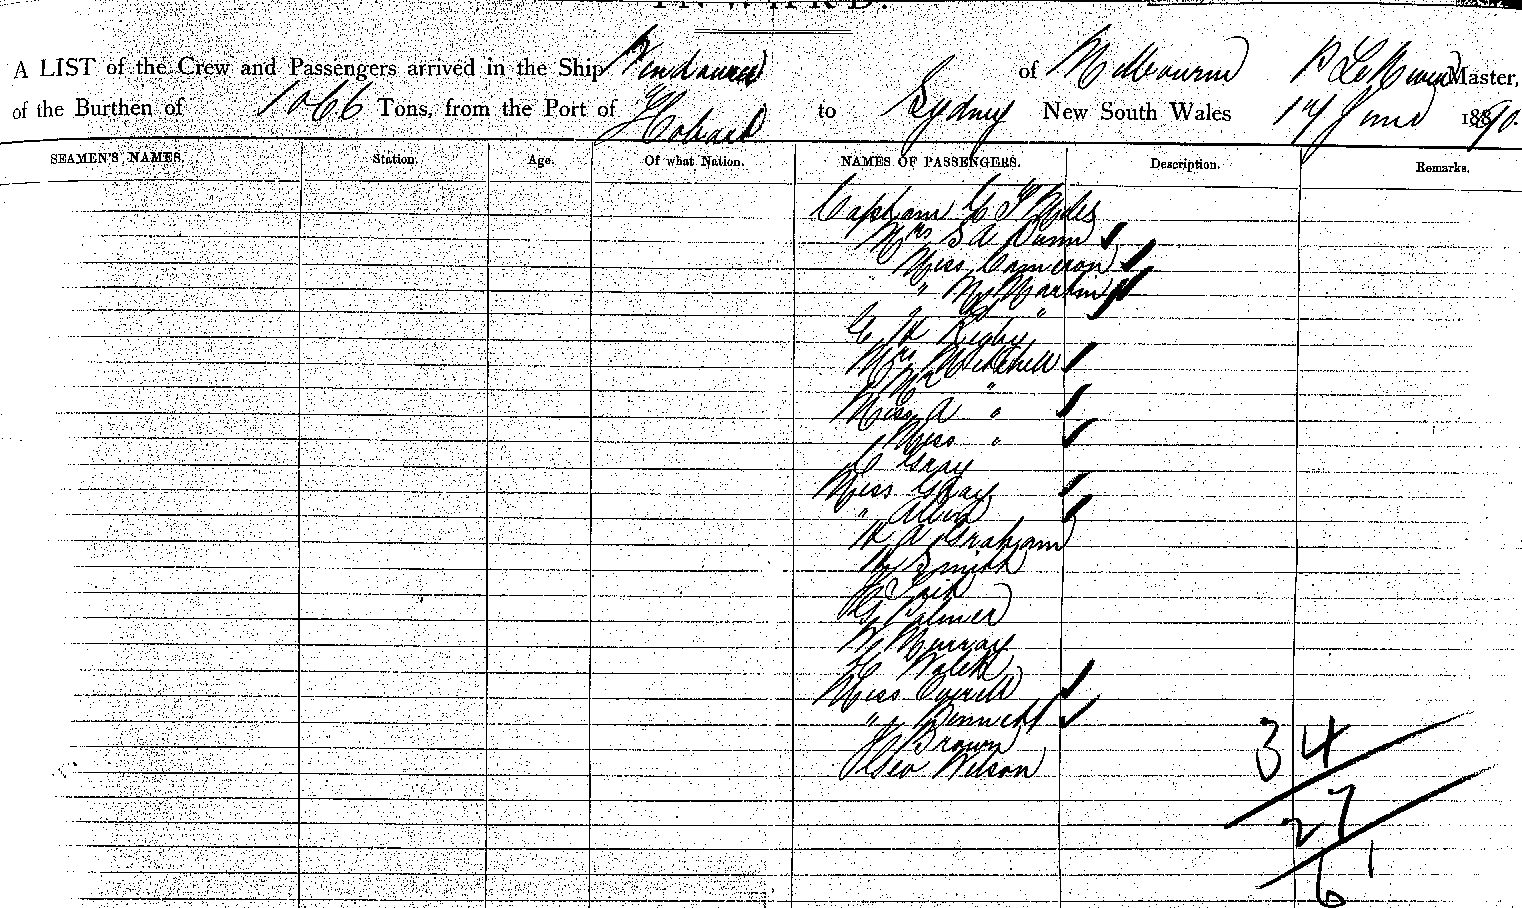 INWARD.
A LIST of the Crew and Passengers arrived in the Ship Wendouree of Melbourne Master,
of the Burthen of 1066 Tons, from the Port of Hobart to Sydney New South Wales June 1890.
SEAMEN'S NAMES. Station. Age. Of what Nation. NAMES OF PASSENGERS. Description. Remarks.
Captain
Mrs S A Dunn
Miss Cameron
" Martin
"
Rigby
Mrs Mitchell
"
Miss A "
Miss "
Gray
Miss Gray
" Allen
H A Graham
W Smith
Tait
G Palmer
W Murray
Walsh
Miss
" Bennett
H Brown
Geo Wilson
34
27
61